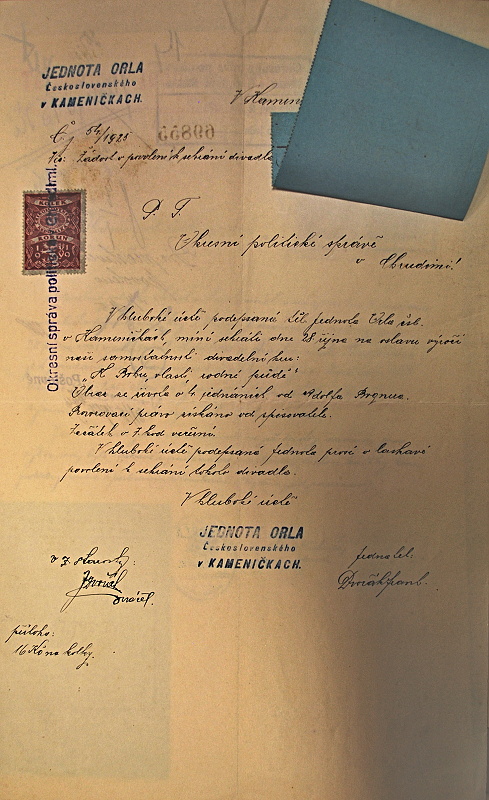 JEDNOTA ORLA
Československého
v KAMENIČKACH.
V Kamen
Čj. 54/1925
69855
Věc: Žádost o povolení k sehrání divadla
KOLEK
KORUN
Okresní správa politická
P. T.
Okresní politické správě
v Chrudimi!
V hluboké úctě podepsaná těl. jednota Orla čsl.
v Kameničkách, míní sehráti dne 28 října na oslavu výročí
naší samostatnosti divadelní hru:
"K Bohu, vlasti, rodné půdě"
Obraz ze života o 4 jednáních od Adolfa Bognera.
Provozovací právo získáno od spisovatele.
Začátek o 7 hod večerní.
V hluboké úctě podepsaná jednota prosí o laskavé
povolení k sehrání tohoto divadla.
V hluboké úctě
JEDNOTA ORLA
Československého
v KAMENIČKACH.
v z. starosty:
jednatel:
Dvořák Frant.
příloha:
16 Kč na kolky.